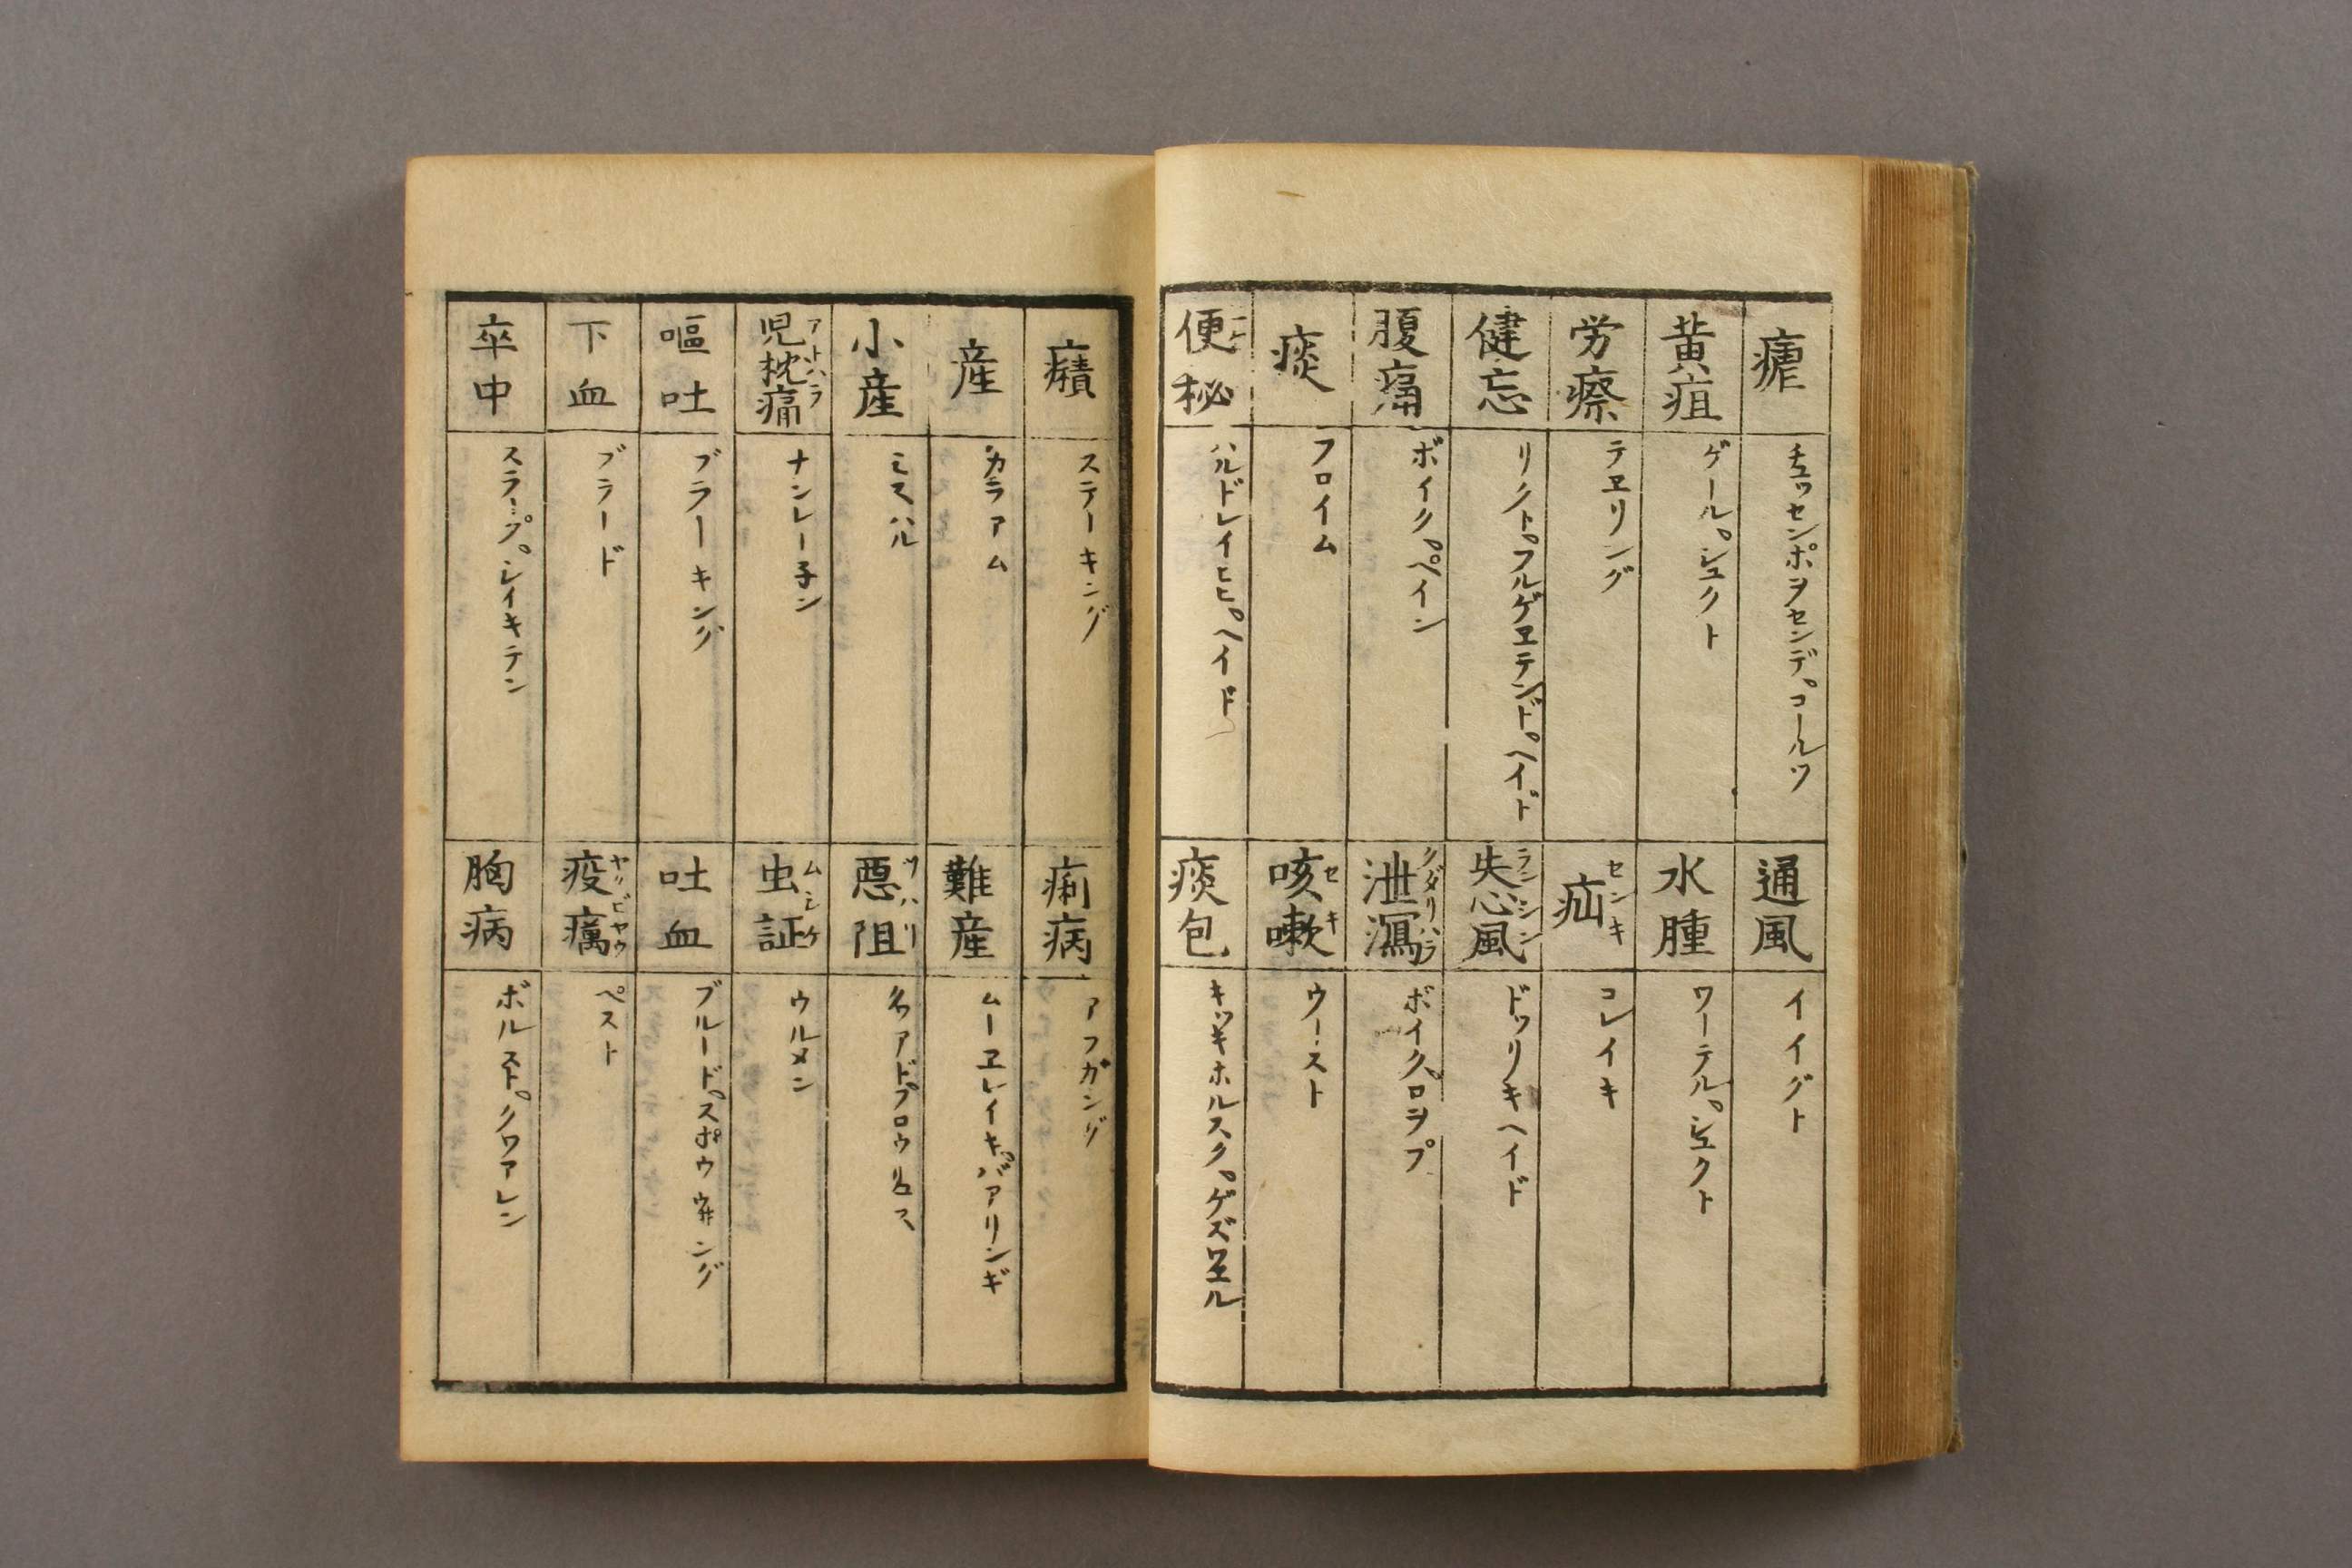 瘧 チュッセンポヲセンデ。コールツ
黄疸 ゲール。シュクト
労瘵 テヱリング
健忘 リクト。フルゲヱテンド。ヘイド
腹痛 ボイク。ペイン
痰 フロイム
便秘 ハルドレイヒヒ。ヘイド
通風 イイグト
水腫 ワーテル。シュクト
疝 センキ コレイキ
失心風 ランシン ドツリキヘイド
泄瀉 クダリハラ ボイク。ロヲプ
咳嗽 セキ ウースト
痰包 キッキホルスク。ゲズヱル
癪 ステーキング
産 カラアム
小産 ミスハル
児枕痛 アトハラ ナンレー子ン
嘔吐 ブラーキング
下血 ブラード
卒中 スラープ。レイキテン
痢病 アフガング
難産 ムーヱレイキ。バアリンギ
悪阻 ツハリ
虫証 ムシケ ウルメン
吐血 ブルード。スポウウィング
疫癘 ヤクビヤウ ペスト
胸病 ボルスト。クワアレン